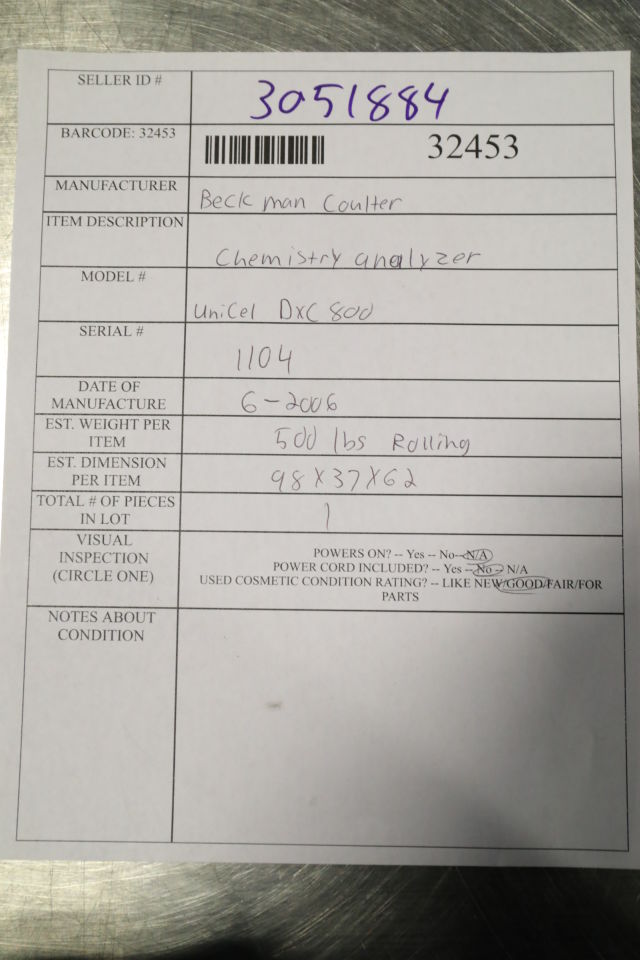 SELLER ID #
3051884
BARCODE: 32453
32453
MANUFACTURER
Beckman Coulter
ITEM DESCRIPTION
Chemistry analyzer
MODEL #
UniCel DxC 800
SERIAL #
1104
DATE OF
MANUFACTURE
6-2006
EST. WEIGHT PER
ITEM
500 lbs Rolling
EST. DIMENSION
PER ITEM
98X37X62
TOTAL # OF PIECES
IN LOT
1
VISUAL
INSPECTION
(CIRCLE ONE)
POWERS ON? -- Yes -- No--N/A
POWER CORD INCLUDED? -- Yes -- No -- N/A
USED COSMETIC CONDITION RATING? -- LIKE NEW/GOOD/FAIR/FOR
PARTS
NOTES ABOUT
CONDITION